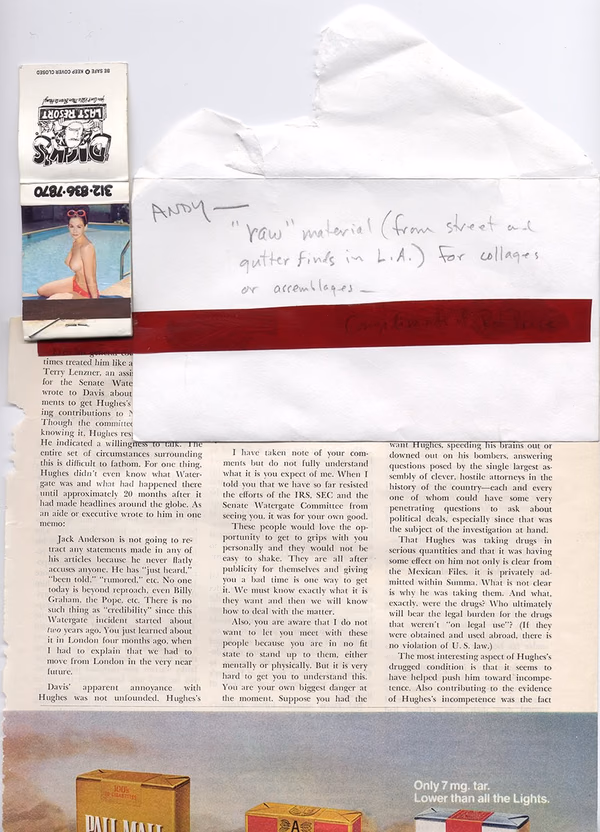 BE SAFE ✪ KEEP COVER CLOSED
DICK'S
LAST RESORT
312-836-7870
ANDY —
"raw" material (from street and
gutter finds in L.A.) For collages
or assemblages —
times treated him like a
Terry Lenzner, an assi
for the Senate Wate
wrote to Davis about
ments to get Hughes's
ing contributions to N
Though the committe
knowing it, Hughes res
He indicated a willingness to talk. The
entire set of circumstances surrounding
this is difficult to fathom. For one thing,
Hughes didn't even know what Water-
gate was and what had happened there
until approximately 20 months after it
had made headlines around the globe. As
an aide or executive wrote to him in one
memo:
Jack Anderson is not going to re-
tract any statements made in any of
his articles because he never flatly
accuses anyone. He has "just heard,"
"been told," "rumored," etc. No one
today is beyond reproach, even Billy
Graham, the Pope, etc. There is no
such thing as "credibility" since this
Watergate incident started about
two years ago. You just learned about
it in London four months ago, when
I had to explain that we had to
move from London in the very near
future.
Davis' apparent annoyance with
Hughes was not unfounded. Hughes's
I have taken note of your com-
ments but do not fully understand
what it is you expect of me. When I
told you that we have so far resisted
the efforts of the IRS, SEC and the
Senate Watergate Committee from
seeing you, it was for your own good.
These people would love the op-
portunity to get to grips with you
personally and they would not be
easy to shake. They are all after
publicity for themselves and giving
you a bad time is one way to get
it. We must know exactly what it is
they want and then we will know
how to deal with the matter.
Also, you are aware that I do not
want to let you meet with these
people because you are in no fit
state to stand up to them, either
mentally or physically. But it is very
hard to get you to understand this.
You are your own biggest danger at
the moment. Suppose you had the
want Hughes, speeding his brains out or
downed out on his bombers, answering
questions posed by the single largest as-
sembly of clever, hostile attorneys in the
history of the country—each and every
one of whom could have some very
penetrating questions to ask about
political deals, especially since that was
the subject of the investigation at hand.
That Hughes was taking drugs in
serious quantities and that it was having
some effect on him not only is clear from
the Mexican Files, it is privately ad-
mitted within Summa. What is not clear
is why he was taking them. And what,
exactly, were the drugs? Who ultimately
will bear the legal burden for the drugs
that weren't "on legal use"? (If they
were obtained and used abroad, there is
no violation of U.S. law.)
The most interesting aspect of Hughes's
drugged condition is that it seems to
have helped push him toward incompe-
tence. Also contributing to the evidence
of Hughes's incompetence was the fact
Only 7 mg. tar.
Lower than all the Lights.
100's
PALL MALL
A